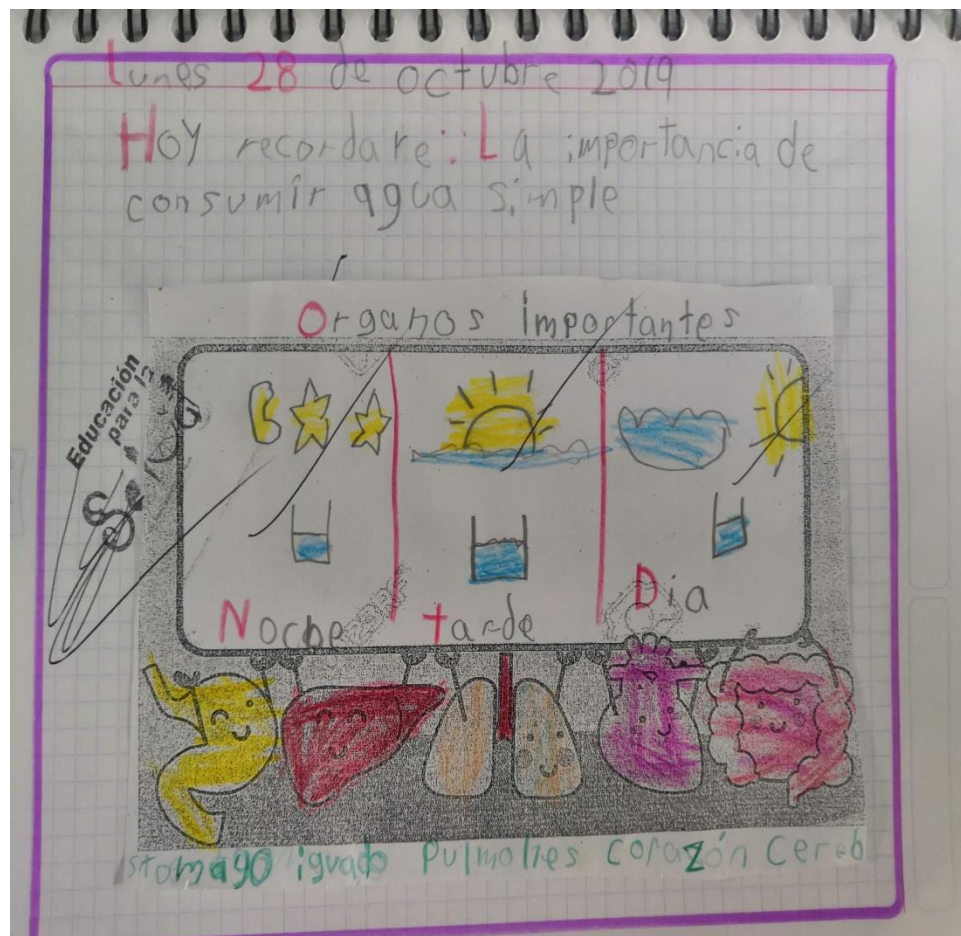 Lunes 28 de octubre 2019
Hoy recordare: La importancia de
consumir agua simple
Organos importantes
Educación
para la
Noche tarde Dia
stomago iguado Pulmones corazón Cereb